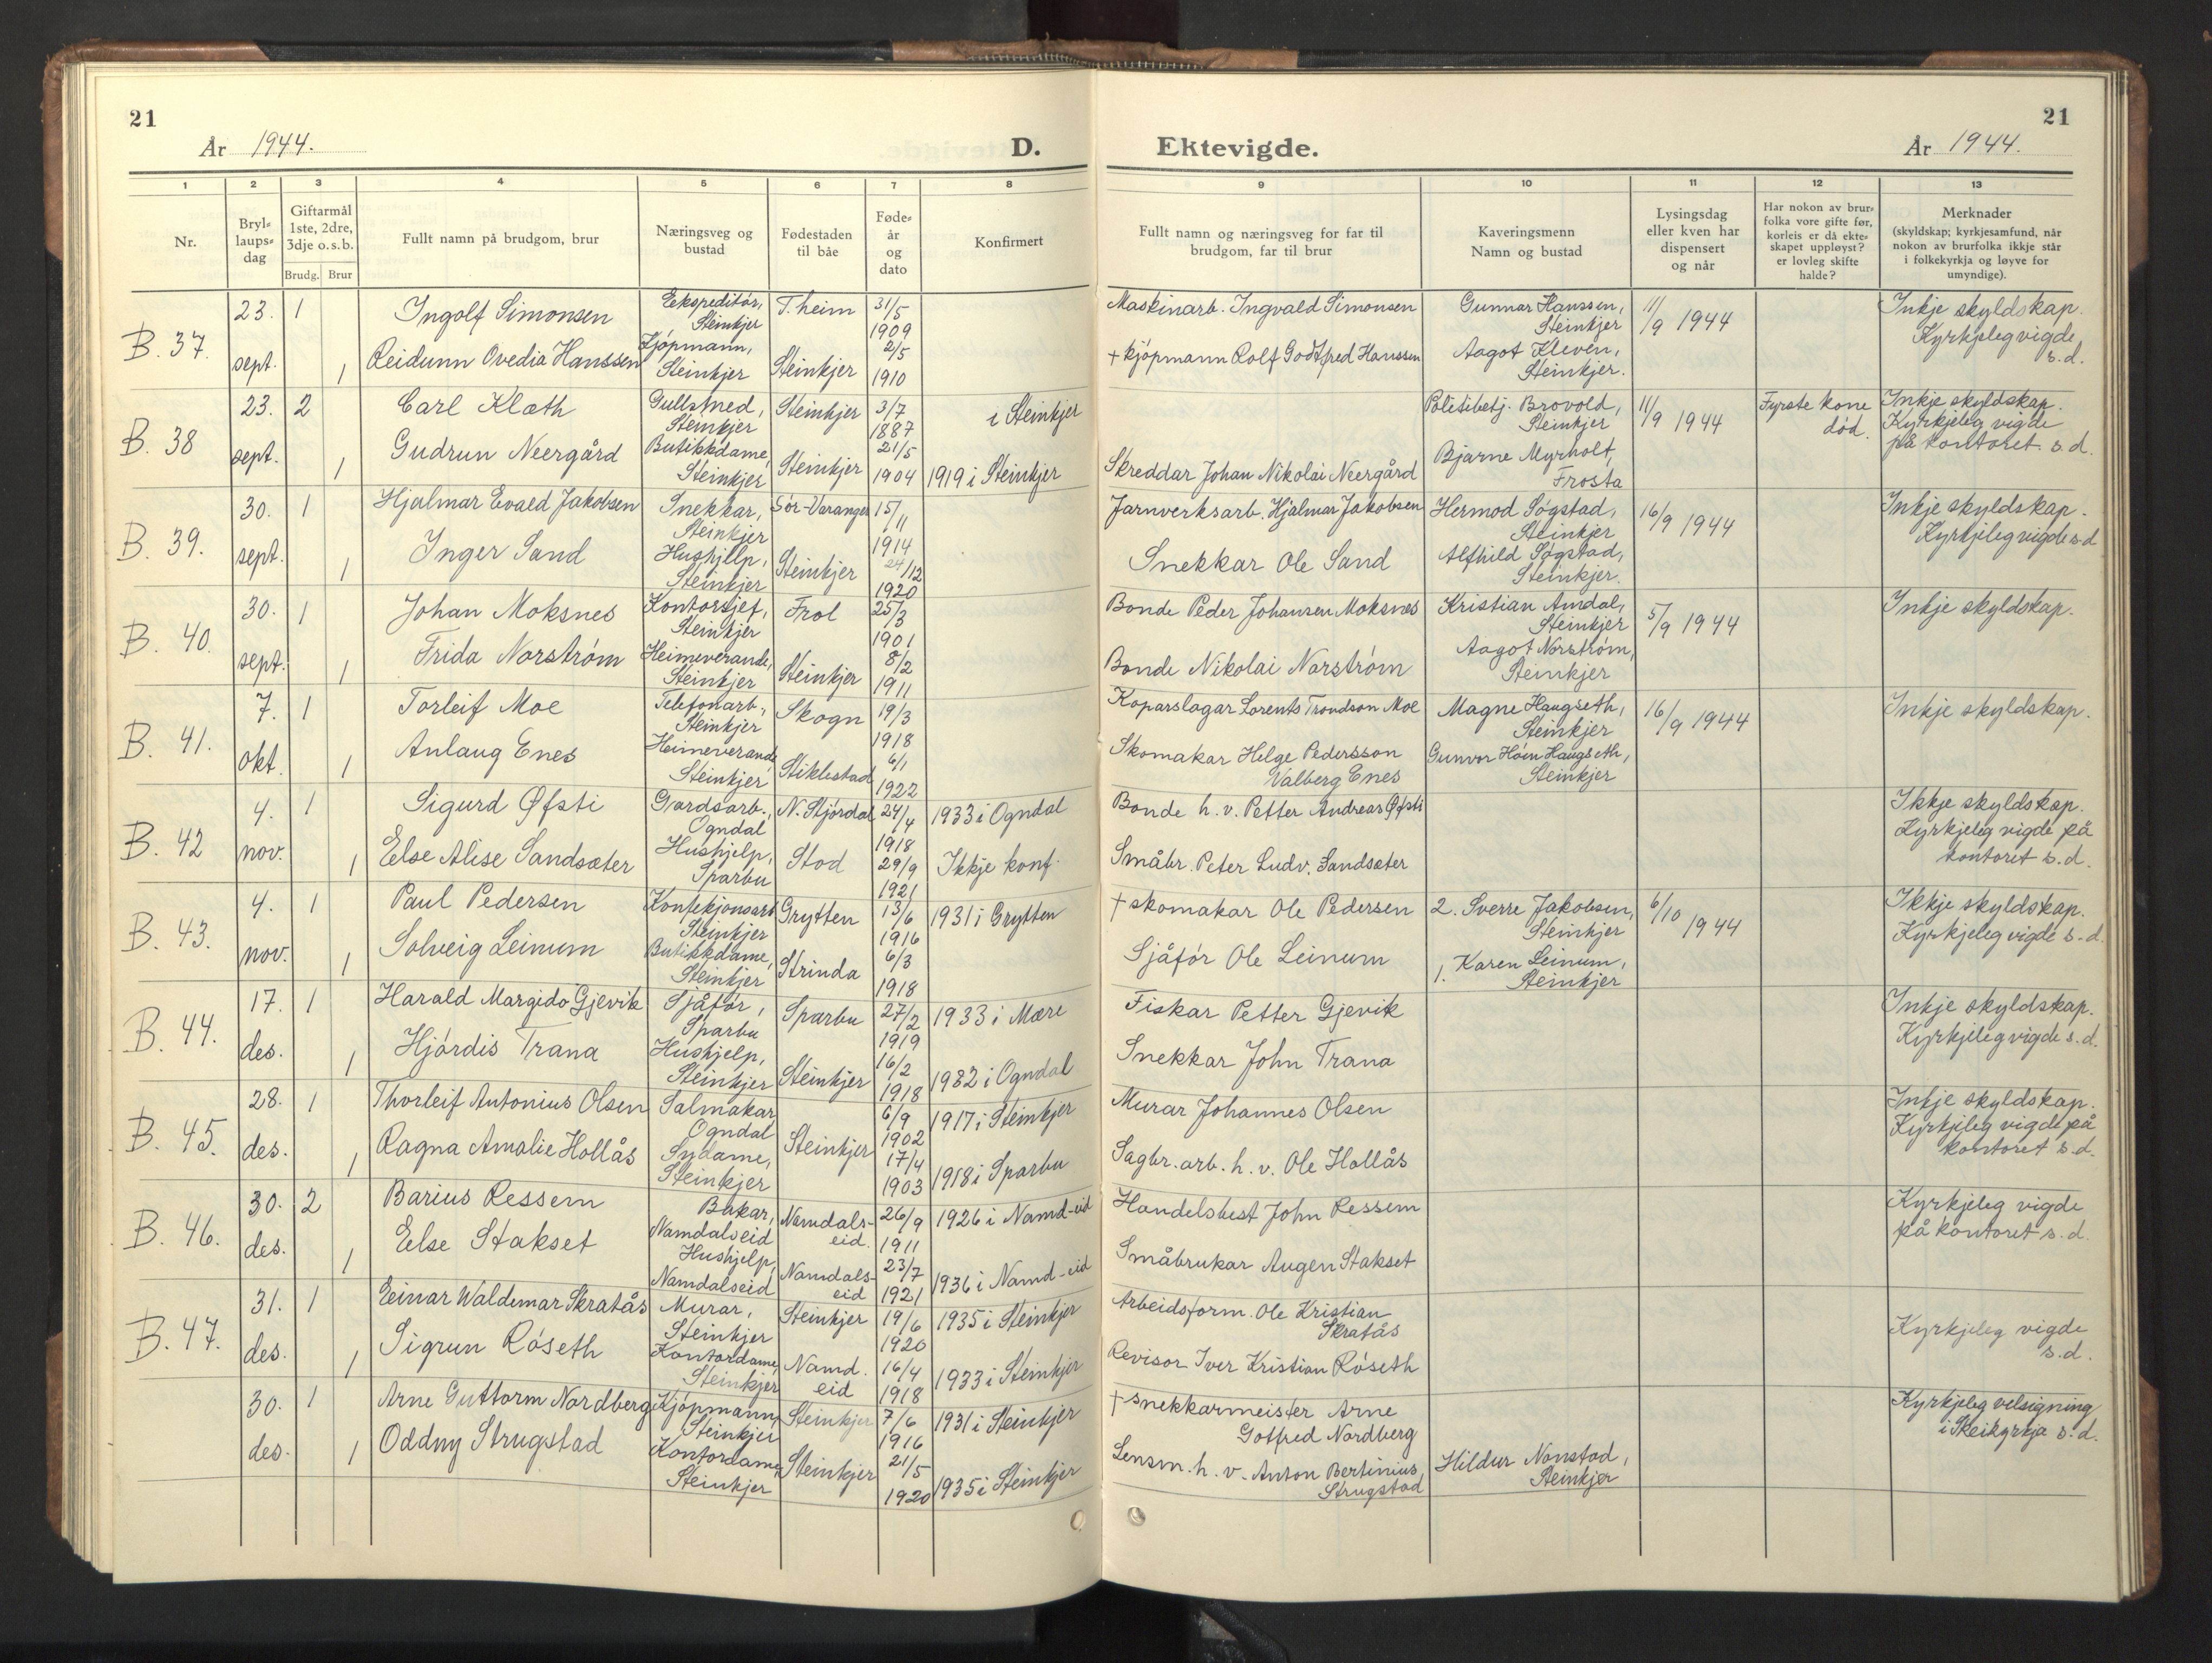 21
21
År 1944.
D. Ektevigde.
År 1944.
1
2
3
4
5
6
7
8
9
10
11
12
13
Nr.
Bryl-
laups-
dag
Giftarmål
1ste, 2dre,
3dje o.s.b.
Brudg. Brur
Fullt namn på brudgom, brur
Næringsveg og
bustad
Fødestaden
til båe
Føde-
år
og
dato
Konfirmert
Fullt namn og næringsveg for far til
brudgom, far til brur
Kaveringsmenn
Namn og bustad
Lysingsdag
eller kven har
dispensert
og når
Har nokon av brur-
folka vore gifte før,
korleis er då ekte-
skapet uppløyst?
er lovleg skifte
halde?
Merknader
(skyldskap; kyrkjesamfund, når
nokon av brurfolka ikkje står
i folkekyrkja og løyve for
umyndige).
B. 37.
23. sept.
1
1
Ingolf Simonsen
Reidunn Ovedia Hanssen
Eekspeditör,
Steinkjer
Kjöpmann,
Steinkjer
T.heim
Steinkjer
31/5
1909
2/5
1910
Maskinarb. Ingvald Simonsen
+ kjöpmann Rolf Godtfred Hanssen
Gunnar Hanssen,
Steinkjer
Aagot Kleven,
Steinkjer.
11/9 1944
Inkje skyldskap.
Kyrkjeleg vigde
s.d.
B. 38
23. sept.
2
1
Carl Klæth
Gudrun Neergård
Gullsmed,
Steinkjer
Butikkdame,
Steinkjer
Steinkjer
Steinkjer
3/7
1887
21/5
1904
i Steinkjer
1919 i Steinkjer
Skreddar Johan Nikolai Neergård
Politibetj. Brovold,
Steinkjer
Bjarne Myrholt,
Frosta
11/9 1944
Fyrste kone
död.
Inkje skyldskap.
Kyrkjeleg vigde
på kontoret s.d.
B. 39.
30. sept.
1
1
Hjalmar Evald Jakobsen
Inger Sand
Snekkar,
Steinkjer
Hushjelp,
Steinkjer
Sör-Varanger
Steinkjer
15/11
1914
24/12
1920
Jarnverksarb. Hjalmar Jakobsen
Snekkar Ole Sand
Hermod Sögstad,
Steinkjer
Alfhild Sögstad,
Steinkjer.
16/9 1944
Inkje skyldskap.
Kyrkjeleg vigde s.d
B. 40.
30. sept.
1
1
Johan Moksnes
Frida Norström
Kontorsjef,
Steinkjer
Heimeverande,
Steinkjer
Frol
Steinkjer
25/3
1901
8/2
1911
Bonde Peder Johansen Moksnes
Bonde Nikolai Norström
Kristian Amdal,
Steinkjer
Aagot Norström,
Steinkjer
5/9 1944
Inkje skyldskap.
B. 41.
7. okt.
1
1
Torleif Moe
Anlaug Enes
Telefonarb.,
Steinkjer
Heimeverande
Steinkjer
Skogn
Stiklestad
19/3
1918
6/1
1922
Koparslagar Lorents Trondson Moe
Skomakar Helge Pedersson
Valberg Enes
Magne Haugseth,
Steinkjer
Gunvor Höin Haugseth,
Steinkjer
16/9 1944
Inkje skyldskap.
B. 42
4. nov.
1
1
Sigurd Øfsti
Else Alise Sandsæter
Gardsarb.,
Ogndal
Hushjelp,
Sparbu
N. Stjördal
Stod
24/4
1918
29/9
1921
1933 i Ogndal
Ikkje konf.
Bonde h.v. Petter Andreas Øfsti
Småbr. Peter Ludv. Sandsæter
Ikkje skyldskap.
Kyrkjeleg vigde på
kontoret s.d.
B. 43.
4. nov.
1
1
Paul Pedersen
Solveig Leinum
Konfekjonsarb
Steinkjer
Butikkdame,
Steinkjer
Grytten
Strinda
13/6
1916
6/3
1918
1931 i Grytten
+ skomakar Ole Pedersen
Sjåför Ole Leinum
2. Sverre Jakobsen,
Steinkjer
1. Karen Leinum,
Steinkjer
6/10 1944
Ikkje skyldskap.
Kyrkjeleg vigde s.d.
B. 44.
17. des.
1
1
Harald Margido Gjevik
Hjördis Trana
Sjåför,
Sparbu
Hushjelp,
Steinkjer
Sparbu
Steinkjer
27/2
1919
16/2
1918
1933 i Mære
1932 i Ogndal
Fiskar Petter Gjevik
Snekkar John Trana
Inkje skyldskap.
Kyrkjeleg vigde s.d.
B. 45.
28. des.
1
1
Thorleif Antonius Olsen
Ragna Amalie Hollås
Salmakar
Ogndal
Sydame,
Steinkjer
Steinkjer
6/9
1902
17/4
1903
1917 i Steinkjer
1918 i Sparbu
Murar Johannes Olsen
Sagbr.arb. h.v. Ole Hollås
Inkje skyldskap.
Kyrkjeleg vigde på
kontoret s.d.
B. 46.
30. des.
2
1
Barius Ressem
Else Stakset
Bakar,
Namdalseid
Hushjelp,
Namdalseid
Namdals-
eid.
Namdals-
eid
26/9
1911
23/7
1921
1926 i Namd-eid
1936 i Namd-eid
Handelsbest John Ressem
Småbrukar Augen Stakset
Kyrkjeleg vigde
på kontoret s.d.
B. 47.
31. des.
1
1
Einar Waldemar Skratås
Sigrun Röseth
Murar,
Steinkjer
Kontordame,
Steinkjer
Steinkjer
Namd.
eid
19/6
1920
16/4
1918
1935 i Steinkjer
1933 i Steinkjer
Arbeidsform. Ole Kristian
Skratås
Revisor Iver Kristian Röseth
Kyrkjeleg vigde
s.d.
30. des.
1
1
Arne Guttorm Nordberg
Oddny Strugstad
Kjöpmann,
Steinkjer
Kontordame,
Steinkjer
Steinkjer
Steinkjer
7/6
1916
21/5
1920
1931 i Steinkjer
1935 i Steinkjer
+ snekkarmeister Arne
Gotfred Nordberg
Lensm. h.v. Anton Bertinius
Strugstad
Hildur Nonstad,
Steinkjer
Kyrkjeleg velsigning
i Skeikyrkja s.d.